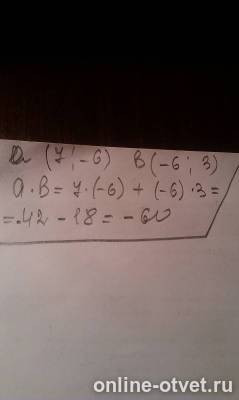 a (7; -6) B (-6; 3)
a · B = 7 · (-6) + (-6) · 3 =
= -42 - 18 = -60
online-otvet.ru